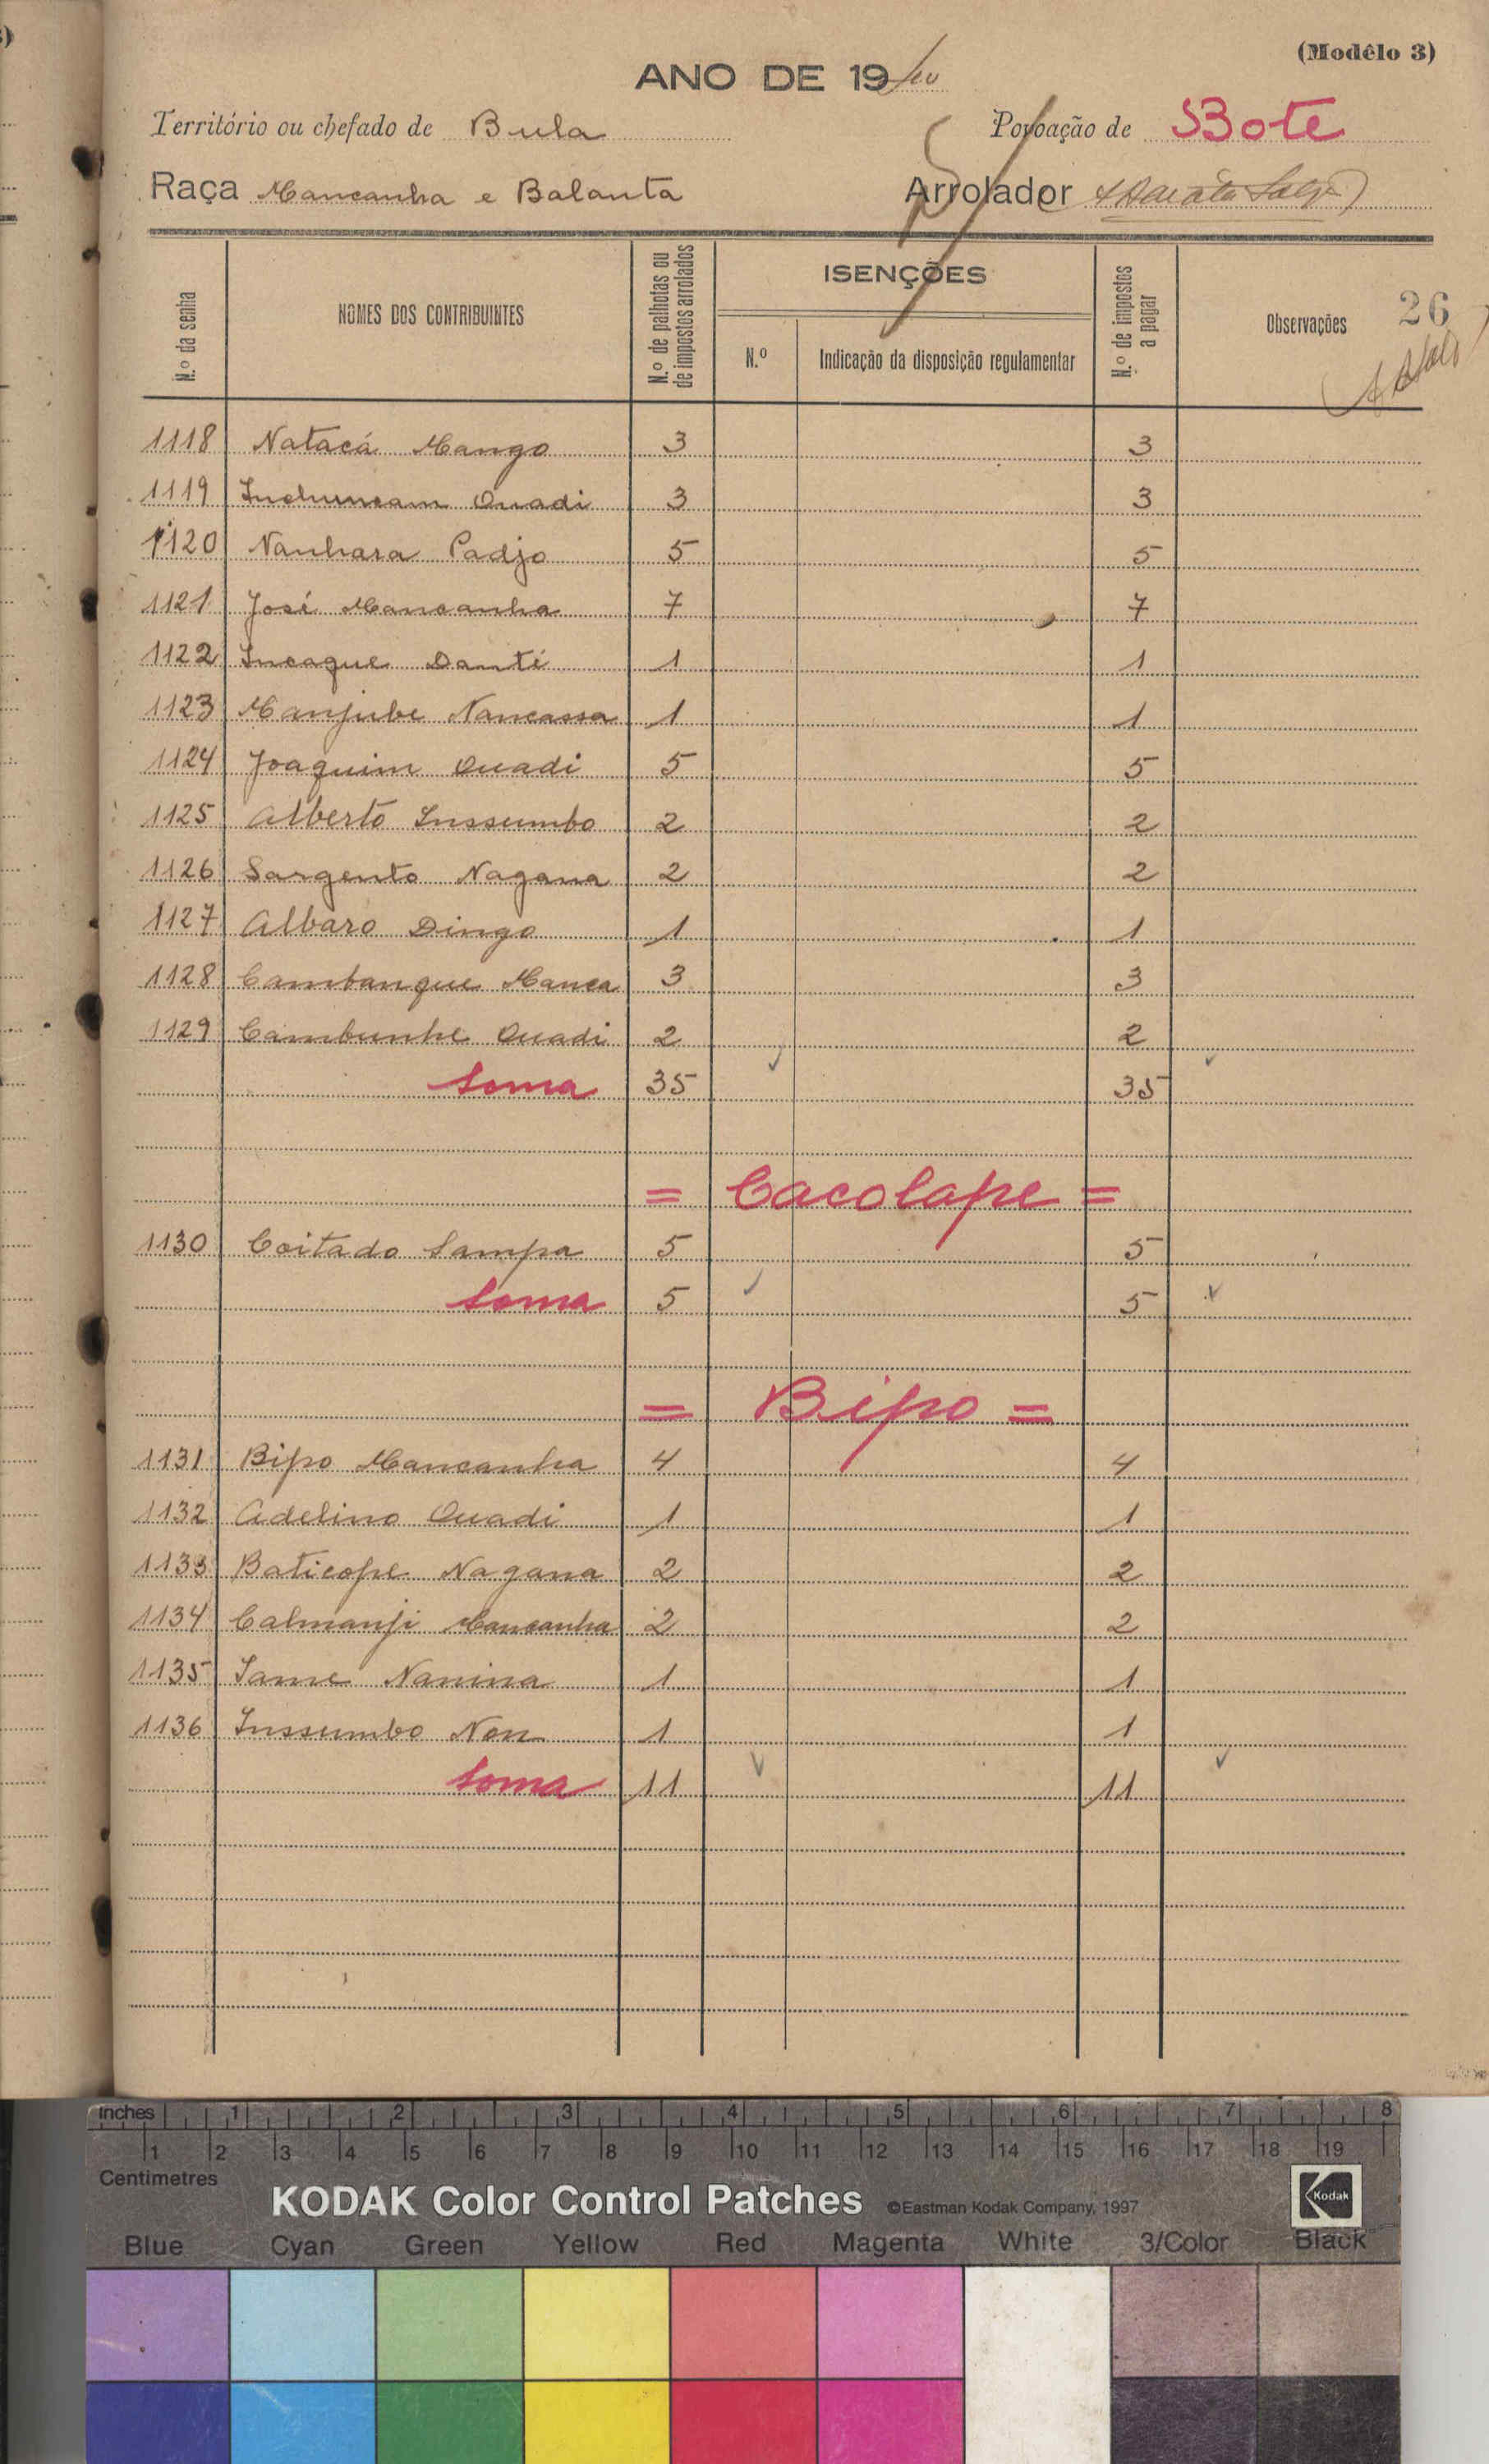 (Modêlo 3)
ANO DE 19
Território ou chefado de Bula Povoação de Bote
Raça Mancanha e Balanta Arrolador
N.º da senha NOMES DOS CONTRIBUINTES N.º de palhotas ou de impostos arrolados ISENÇÕES N.º Indicação da disposição regulamentar N.º de impostos a pagar Observações 26
1118 Natacá Mango 3 3
1119 Inchuncam Quadi 3 3
1120 Nanhara Padjo 5 5
1121 José Mancanha 7 7
1122 Incaque Danté 1 1
1123 Manjube Nancassa 1 1
1124 Joaquim Quadi 5 5
1125 Alberto Inssumbo 2 2
1126 Sargento Nagana 2 2
1127 Albaro Dingo 1 1
1128 Cambanque Manca 3 3
1129 Cambunhe Quadi 2 2
Soma 35 35
= Cacolape =
1130 Coitado Sampa 5 5
Soma 5 5
= Bipo =
1131 Bipo Mancanha 4 4
1132 Adelino Quadi 1 1
1133 Baticope Nagana 2 2
1134 Calmanji Mancanha 2 2
1135 Same Nanina 1 1
1136 Inssumbo Non 1 1
Soma 11 11
inches 1 2 3 4 5 6 7 8
1 2 3 4 5 6 7 8 9 10 11 12 13 14 15 16 17 18 19
Centimetres
KODAK Color Control Patches ©Eastman Kodak Company, 1997 Kodak
Blue Cyan Green Yellow Red Magenta White 3/Color Black